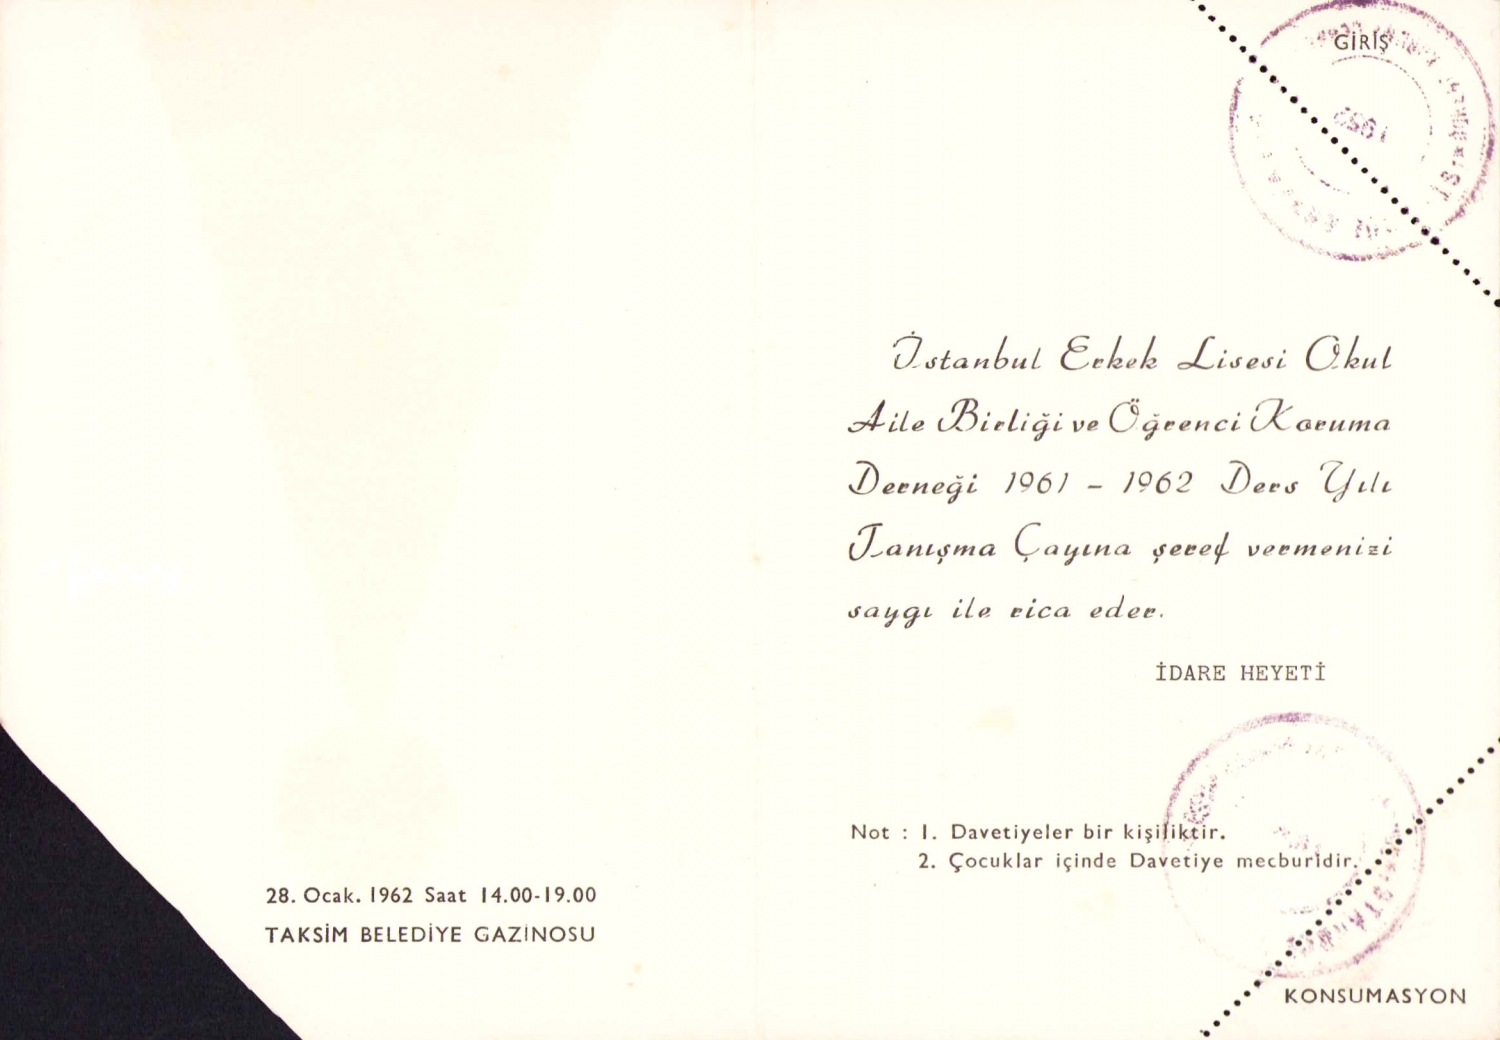 28. Ocak. 1962 Saat 14.00-19.00
TAKSİM BELEDİYE GAZİNOSU
GİRİŞ
1952
İstanbul Erkek Lisesi Okul
Aile Birliği ve Öğrenci Koruma
Derneği 1961 - 1962 Ders Yılı
Tanışma Çayına şeref vermenizi
saygı ile rica eder.
İDARE HEYETİ
Not : 1. Davetiyeler bir kişiliktir.
2. Çocuklar içinde Davetiye mecburidir.
KONSUMASYON